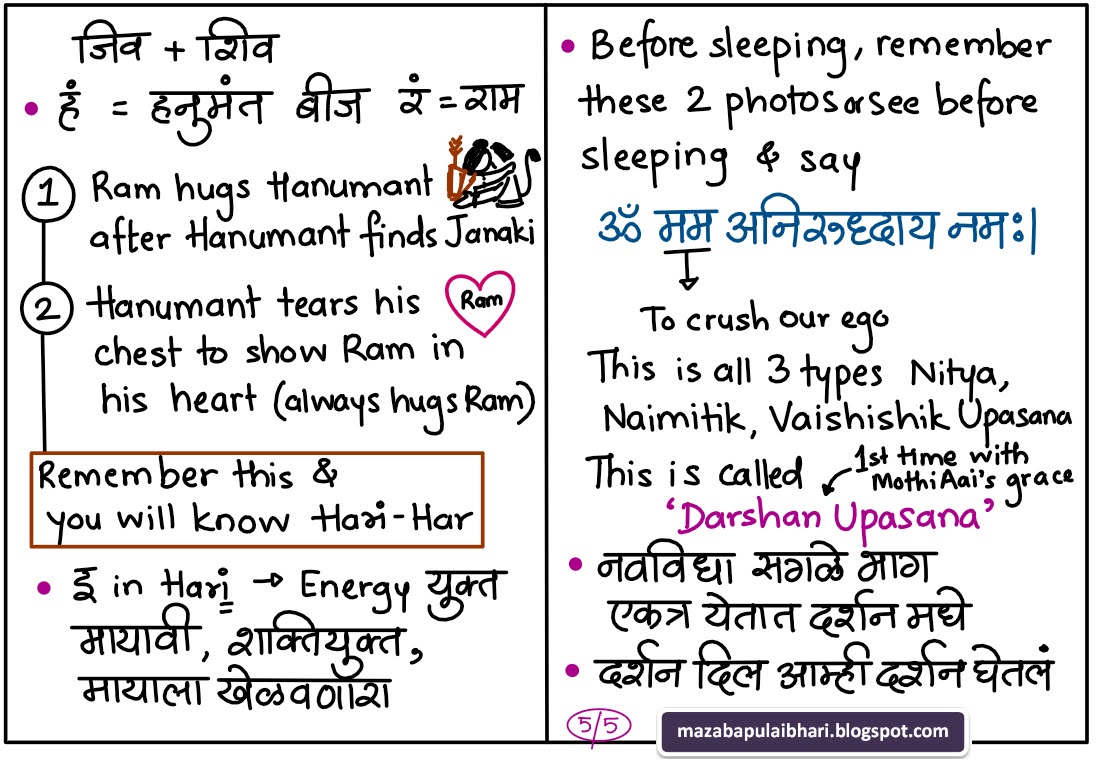 जिव + शिव
• हं = हनुमंत बीज रं = राम
1 Ram hugs Hanumant
after Hanumant finds Janaki
2 Hanumant tears his
Ram
chest to show Ram in
his heart (always hugs Ram)
Remember this &
you will know Hari-Har
• इ in Hari → Energy युक्त
मायावी, शक्तियुक्त,
मायाला खेळवणारा
• Before sleeping, remember
these 2 photos or see before
sleeping & say
ॐ मम अनिरुध्दाय नमः।
To crush our ego
This is all 3 types Nitya,
Naimitik, Vaishishik Upasana
This is called
1st time with
MothiAai's grace
'Darshan Upasana'
• नवविधा सगळे भाग
एकत्र येतात दर्शन मधे
• दर्शन दिल आम्ही दर्शन घेतलं
5/5
mazabapulaibhari.blogspot.com